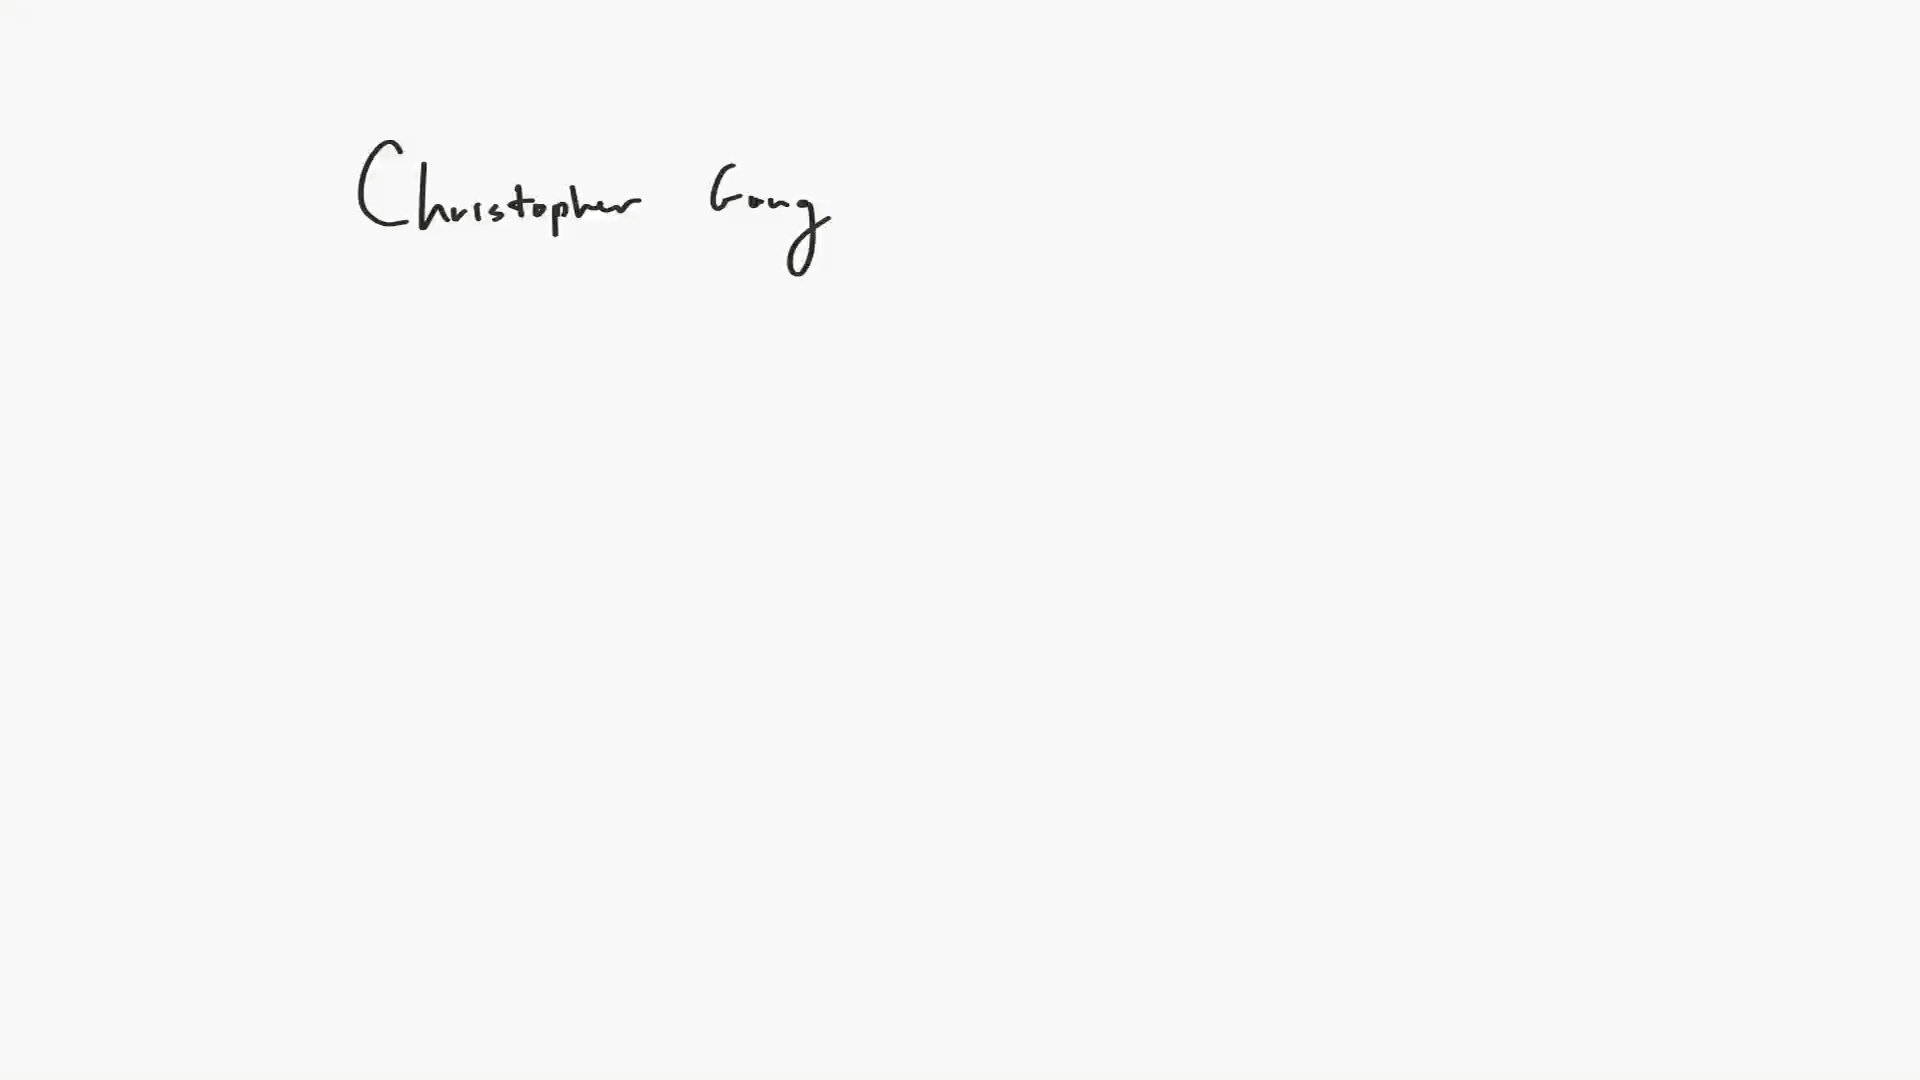 Christopher Gong